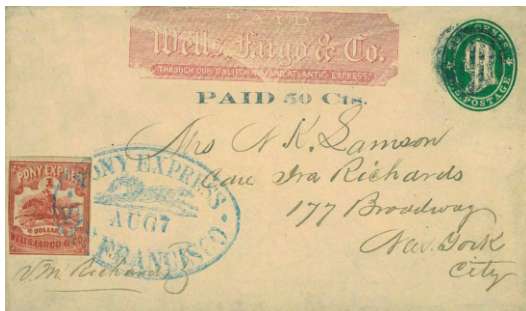 PAID
Wells, Fargo & Co.
THROUGH OUR CALIFORNIA AND ATLANTIC EXPRESS.
PAID 50 Cts.
TEN CENTS
U.S. POSTAGE
Mrs N K. Samson
Care Ira Richards
177 Broadway
New York
City
PONY EXPRESS
DOLLAR
WELLS, FARGO & CO.
PONY EXPRESS
AUG 7
FRANCISCO
V. M. Richards